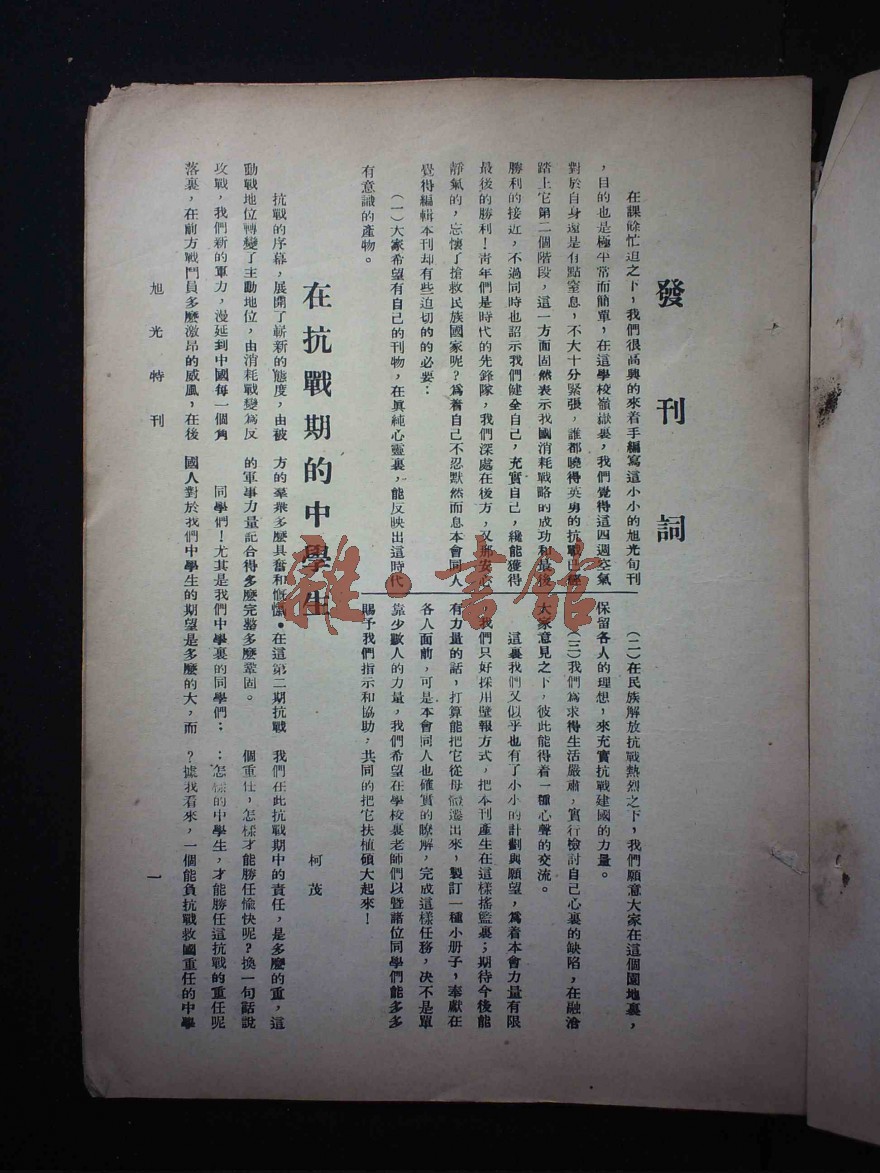 發刊詞
在課餘忙迫之下，我們很高興的來着手編寫這小小的旭光旬刊
，目的也是極平常而簡單，在這學校嶺嶽裏，我們覺得這四週空氣
對於自身還是有點窒息，不大十分緊張，誰都曉得英勇的抗戰已經
踏上它第二個階段，這一方面固然表示我國消耗戰略的成功和最後
勝利的接近，不過同時也詔示我們健全自己，充實自己，纔能獲得
最後的勝利！青年們是時代的先鋒隊，我們深處在後方，又那安心
靜氣的，忘懷了搶救民族國家呢？為着自己不忍默然而息本會同人
覺得編輯本刊却有些迫切的的必要：
（一）大家希望有自己的刊物，在眞純心靈裏，能反映出這時代
有意識的產物。
（二）在民族解放抗戰熱烈之下，我們願意大家在這個園地裏，
保留各人的理想，來充實抗戰建國的力量。
（三）我們為求得生活嚴肅，實行檢討自己心裏的缺陷，在融洽
大家意見之下，彼此能得着一種心聲的交流。
這裏我們又似乎也有了小小的計劃與願望，為着本會力量有限
，我們只好採用壁報方式，把本刊產生在這樣搖籃裏；期待今後能
有力量的話，打算能把它從母懷選出來，製訂一種小册子，奉獻在
各人面前，可是本會同人也確實的瞭解，完成這樣任務，决不是單
靠少數人的力量，我們希望在學校裏老師們以暨諸位同學們能多多
賜予我們指示和協助，共同的把它扶植碩大起來！
在抗戰期的中學生
柯茂
抗戰的序幕，展開了嶄新的態度，由被
動戰地位轉變了主動地位，由消耗戰變為反
攻戰，我們新的軍力，漫延到中國每一個角
落裏，在前方戰鬥員多麽激昂的威風，在後
方的羣衆多麽具奮和慷慨。在這第二期抗戰
的軍事力量記合得多麽完整多麽鞏固。
同學們！尤其是我們中學裏的同學們；
國人對於我們中學生的期望是多麽的大，而
我們在此抗戰期中的責任，是多麽的重，這
個重任，怎樣才能勝任愉快呢？換一句話說
：怎樣的中學生，才能勝任這抗戰的重任呢
？據我看來，一個能負抗戰救國重任的中學
旭光特刊
一
雜·書館